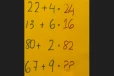 22 + 4 = 26
13 + 6 = 16
80 + 2 = 82
67 + 9 =